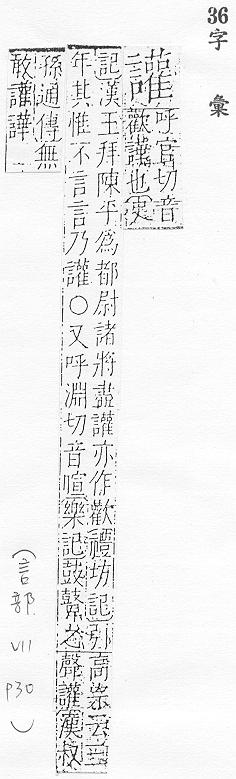 36
字彙
讙
呼官切音
歡讙也史
記漢王拜陳平爲都尉諸將盡讙亦作歡禮坊記引高宗云三
年其惟不言言乃讙○又呼淵切音喧樂記鼓鼙之聲讙漢叔
孫通傳無
敢讙譁
(言部 VII p30)